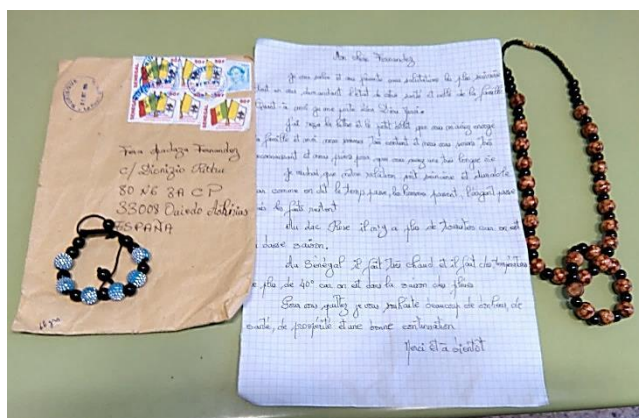 SENEGAL
Fran Fernandez
80 Nº 3A CP
33008 Oviedo Asturias
ESPAÑA
Mon cher Fernandez
Je vous salue et vous présente mes salutations les plus
tout en vous demandant l'état de votre santé et celle de la famille
J'ai reçu la lettre et le petit billet que vous m'avez envoyé
la famille et moi nous sommes très content et nous vous
et nous prions pour que vous ayez une très longue vie
Je voudrais que notre relation soit et durable
comme on dit le temps passe, les hommes passent, l'argent passe
les faits restent
Au Lac Rose il n'y a plus de touristes car on est
en basse saison.
Au Sénégal il fait très chaud et il fait des températures
plus de 40° car on est dans la saison des pluies
vous je vous souhaite beaucoup de bonheur, de
santé, de prospérité et une bonne continuation
Merci et à bientôt